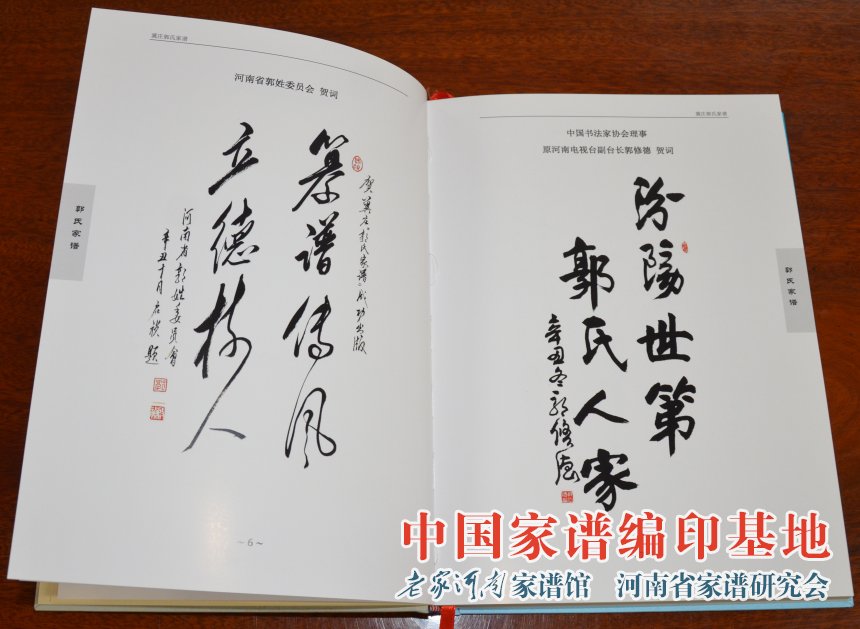 冀庄郭氏家谱
河南省郭姓委员会 贺词
贺冀庄郭氏家谱成功出版
纂谱传风
立德树人
河南省郭姓委员会
辛丑十月 启祺题
郭氏家谱
~6~
冀庄郭氏家谱
中国书法家协会理事
原河南电视台副台长郭修德 贺词
汾阳世第
郭氏人家
辛丑冬郭修德
郭氏家谱
中国家谱编印基地
老家河南家谱馆 河南省家谱研究会